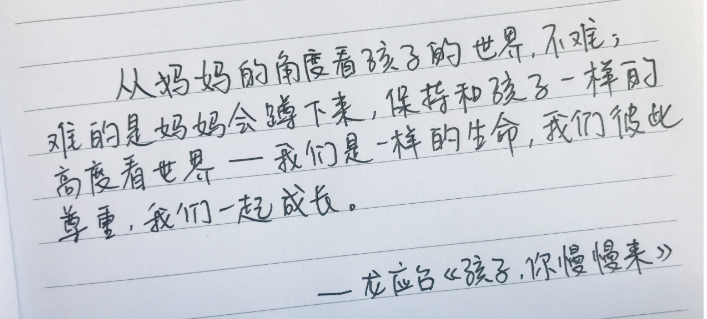 从妈妈的角度看孩子的世界，不难；
难的是妈妈会蹲下来，保持和孩子一样的
高度看世界—我们是一样的生命，我们彼此
尊重，我们一起成长。
—龙应台《孩子，你慢慢来》